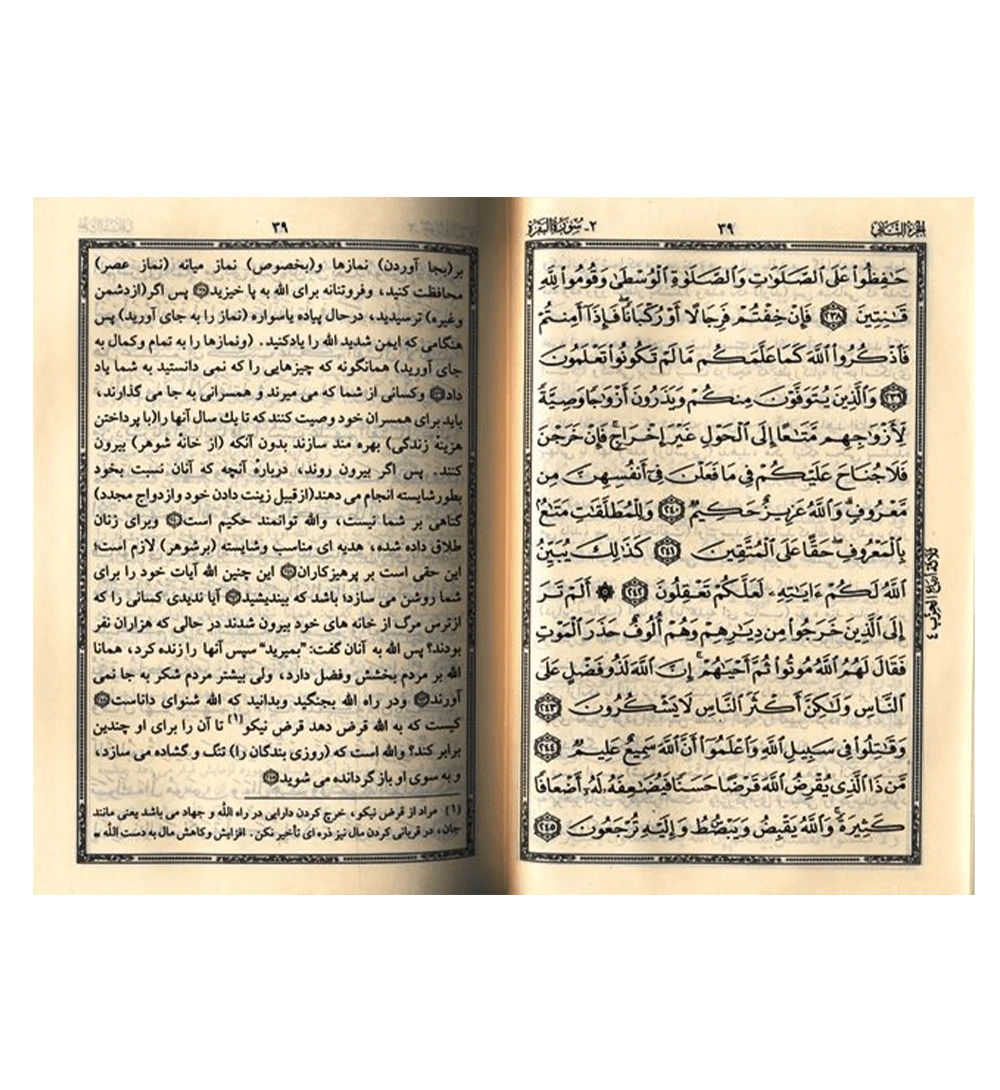 الجزء الثاني
٣٩
٢- سورة البقرة
حَـٰفِظُوا۟ عَلَى ٱلصَّلَوَٰتِ وَٱلصَّلَوٰةِ ٱلْوُسْطَىٰ وَقُومُوا۟ لِلَّهِ
قَـٰنِتِينَ ٢٣٨ فَإِنْ خِفْتُمْ فَرِجَالًا أَوْ رُكْبَانًا ۖ فَإِذَآ أَمِنتُمْ
فَٱذْكُرُوا۟ ٱللَّهَ كَمَا عَلَّمَكُم مَّا لَمْ تَكُونُوا۟ تَعْلَمُونَ
٢٣٩ وَٱلَّذِينَ يُتَوَفَّوْنَ مِنكُمْ وَيَذَرُونَ أَزْوَٰجًا وَصِيَّةً
لِّأَزْوَٰجِهِم مَّتَـٰعًا إِلَى ٱلْحَوْلِ غَيْرَ إِخْرَاجٍ ۚ فَإِنْ خَرَجْنَ
فَلَا جُنَاحَ عَلَيْكُمْ فِى مَا فَعَلْنَ فِىٓ أَنفُسِهِنَّ مِن
مَّعْرُوفٍ ۗ وَٱللَّهُ عَزِيزٌ حَكِيمٌ ٢٤٠ وَلِلْمُطَلَّقَـٰتِ مَتَـٰعٌۢ
بِٱلْمَعْرُوفِ ۖ حَقًّا عَلَى ٱلْمُتَّقِينَ ٢٤١ كَذَٰلِكَ يُبَيِّنُ
ٱللَّهُ لَكُمْ ءَايَـٰتِهِۦ لَعَلَّكُمْ تَعْقِلُونَ ٢٤٢ ۞ أَلَمْ تَرَ
إِلَى ٱلَّذِينَ خَرَجُوا۟ مِن دِيَـٰرِهِمْ وَهُمْ أُلُوفٌ حَذَرَ ٱلْمَوْتِ
فَقَالَ لَهُمُ ٱللَّهُ مُوتُوا۟ ثُمَّ أَحْيَـٰهُمْ ۚ إِنَّ ٱللَّهَ لَذُو فَضْلٍ عَلَى
ٱلنَّاسِ وَلَـٰكِنَّ أَكْثَرَ ٱلنَّاسِ لَا يَشْكُرُونَ ٢٤٣
وَقَـٰتِلُوا۟ فِى سَبِيلِ ٱللَّهِ وَٱعْلَمُوٓا۟ أَنَّ ٱللَّهَ سَمِيعٌ عَلِيمٌ ٢٤٤
مَّن ذَا ٱلَّذِى يُقْرِضُ ٱللَّهَ قَرْضًا حَسَنًا فَيُضَـٰعِفَهُۥ لَهُۥٓ أَضْعَافًا
كَثِيرَةً ۚ وَٱللَّهُ يَقْبِضُ وَيَبْصُۜطُ وَإِلَيْهِ تُرْجَعُونَ ٢٤٥
ثلاثة ارباع الحزب ٤
٣٩
بر(بجا آوردن) نمازها و(بخصوص) نماز میانه (نماز عصر)
محافظت کنید، وفروتنانه برای الله به پا خیزید پس اگر(ازدشمن
وغیره) ترسیدید، درحال پیاده یاسواره (نماز را به جای آورید) پس
هنگامی که ایمن شدید الله را یادکنید. (ونمازها را به تمام وکمال به
جای آورید) همانگونه که چیزهایی را که نمی دانستید به شما یاد
داد وکسانی از شما که می میرند و همسرانی به جا می گذارند،
باید برای همسران خود وصیت کنند که تا یك سال آنها را(با پرداختن
هزینهٔ زندگی) بهره مند سازند بدون آنکه (از خانهٔ شوهر) بیرون
کنند. پس اگر بیرون روند، دربارهٔ آنچه که آنان نسبت بخود
بطورشایسته انجام می دهند(ازقبیل زینت دادن خود وازدواج مجدد)
گناهی بر شما نیست، والله توانمند حکیم است وبرای زنان
طلاق داده شده، هدیه ای مناسب وشایسته (برشوهر) لازم است؛
این حقی است بر پرهیزکاران این چنین الله آیات خود را برای
شما روشن می سازد؛ باشد که بیندیشید آیا ندیدی کسانی را که
ازترس مرگ از خانه های خود بیرون شدند در حالی که هزاران نفر
بودند؟ پس الله به آنان گفت: "بمیرید" سپس آنها را زنده کرد، همانا
الله بر مردم بخشش وفضل دارد، ولی بیشتر مردم شکر به جا نمی
آورند ودر راه الله بجنگید وبدانید که الله شنوای داناست
کیست که به الله قرض دهد قرض نیکو[١] تا آن را برای او چندین
برابر کند؟ والله است که (روزی بندگان را) تنگ و گشاده می سازد،
و به سوی او باز گردانده می شوید
[١] مراد از قرض نیکو، خرج کردن دارایی در راه الله و جهاد می باشد یعنی مانند
جان، در قربانی کردن مال نیز ذره ای تأخیر نکن. افزایش وکاهش مال به دست الله